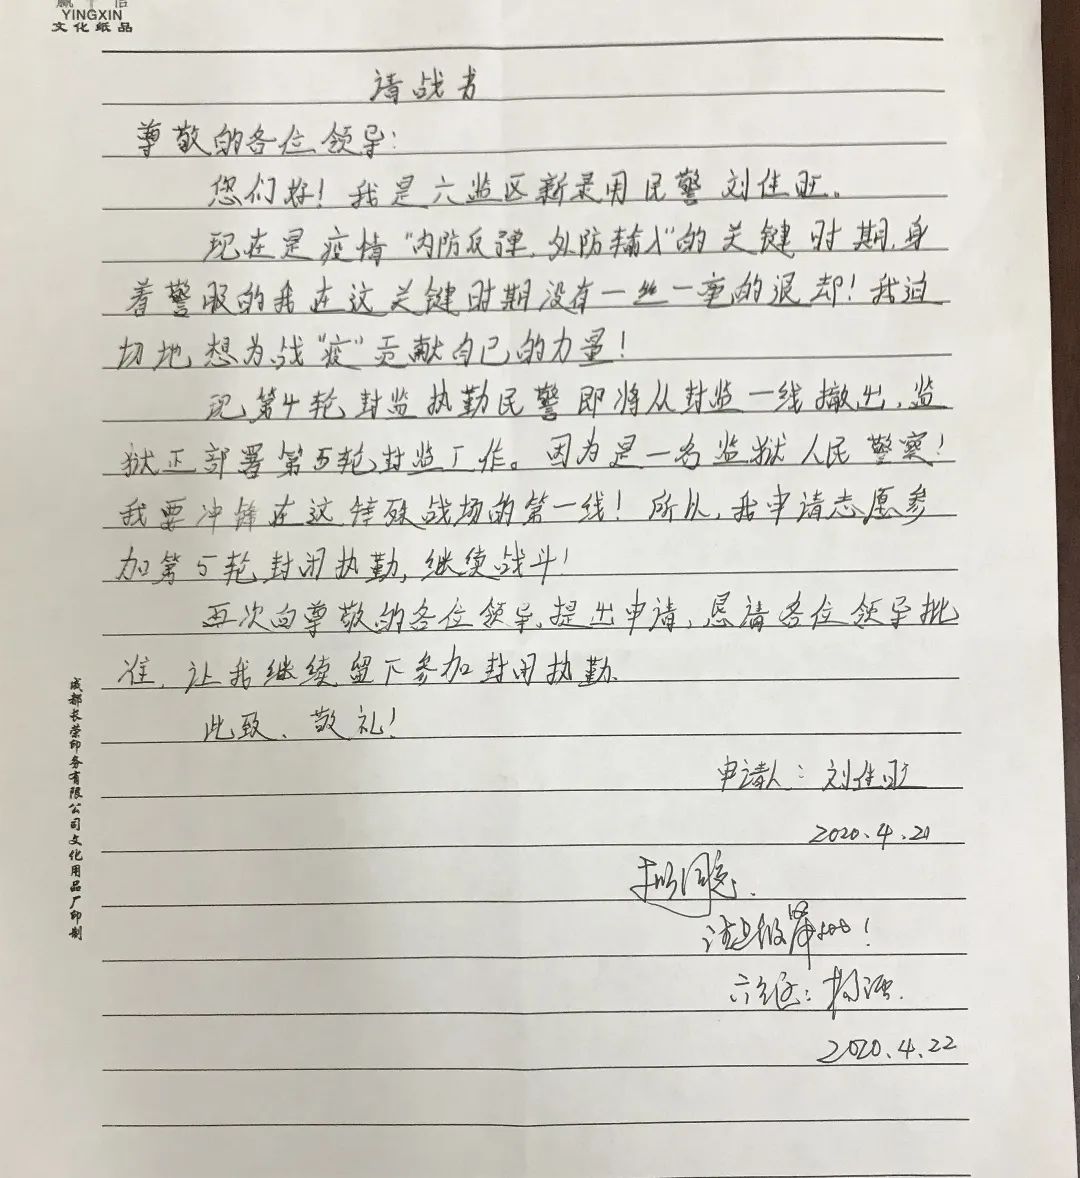 YINGXIN
文化纸品
请战书
尊敬的各位领导：
您们好！我是六监区新录用民警刘佳旺。
现在是疫情“内防反弹，外防输入”的关键时期，身
着警服的我在这关键时期没有一丝一毫的退却！我迫
切地想为战“疫”贡献自己的力量！
现，第4轮封监执勤民警即将从封监一线撤出，监
狱正部署第5轮封监工作。因为是一名监狱人民警察！
我要冲锋在这特殊战场的第一线！所以，我申请志愿参
加第5轮封闭执勤，继续战斗！
再次向尊敬的各位领导提出申请，恳请各位领导批
准，让我继续留下参加封闭执勤。
此致、敬礼！
申请人：刘佳旺
2020.4.21
拟同意.
六监区：杨强.
2020.4.22
成都长荣印务有限公司文化用品厂印制